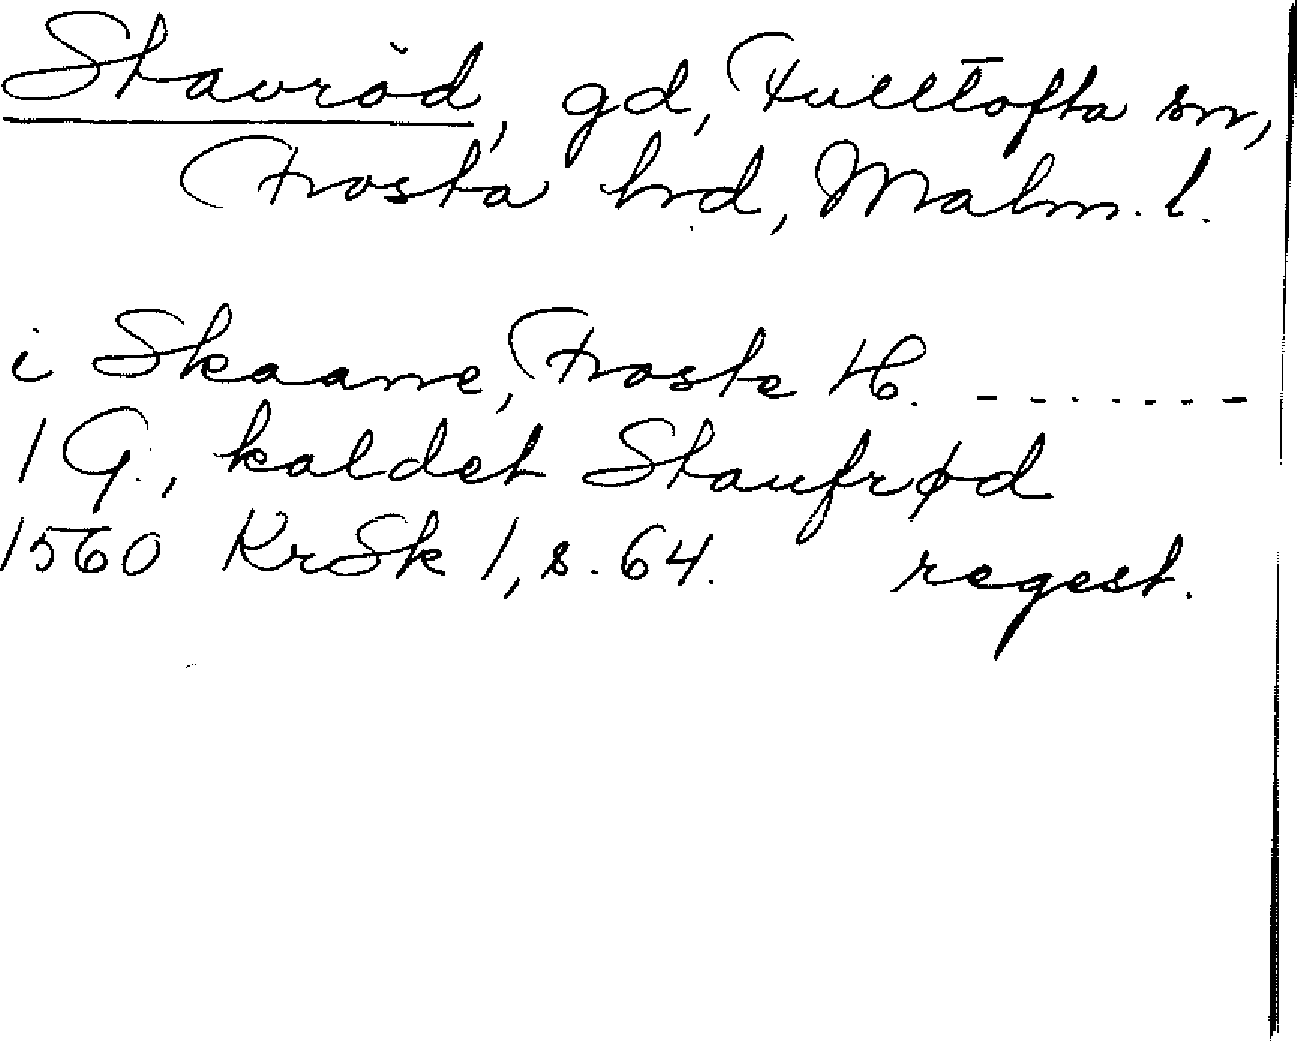 Stavröd, gd, Fulltofta sn,
Frosta hrd, Malm. l.
i Skaane, Froste H. - - - - - - -
1 G., kaldet Staufrød
1560 KrSk 1, s. 64. regest.